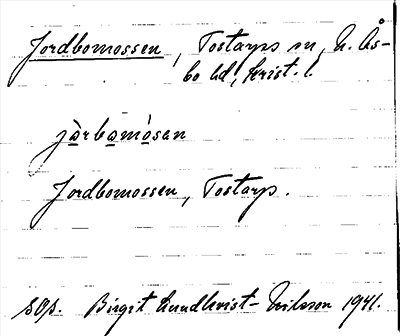 Jordbomossen, Tostarps sn, N. Ås-
bo hd, Krist. l.
jàrbamósan
Jordbomossen, Tostarp.
SOs. Birgit Lundkvist-Nilsson 1941.